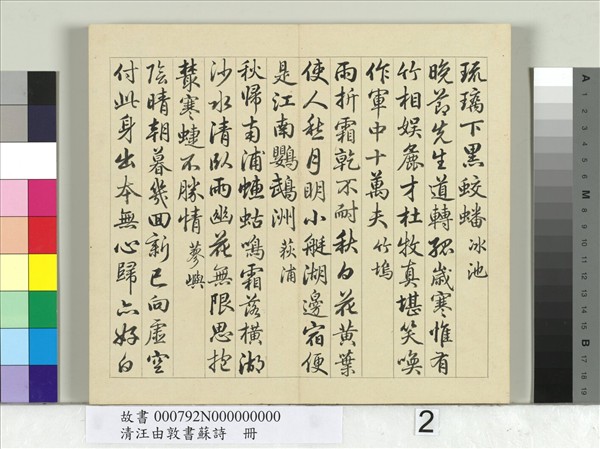 琉璃下黑蛟蟠 冰池
晚節先生道轉孤歲寒惟有
竹相娛麄才杜牧真堪笑喚
作軍中十萬夫 竹塢
雨折霜乾不耐秋白花黃葉
使人愁月明小艇湖邊宿便
是江南鸚鵡洲 荻浦
秋歸南浦蟪蛄鳴霜落橫湖
沙水清臥雨幽花無限思抱
叢寒蜨不勝情 蓼嶼
陰晴朝暮幾回新已向虛空
付此身出本無心歸亦好白
故書 000792N000000000
清汪由敦書蘇詩 冊
2
A 1 2 3 4 5 6 M 8 9 10 11 12 13 14 15 B 17 18 19